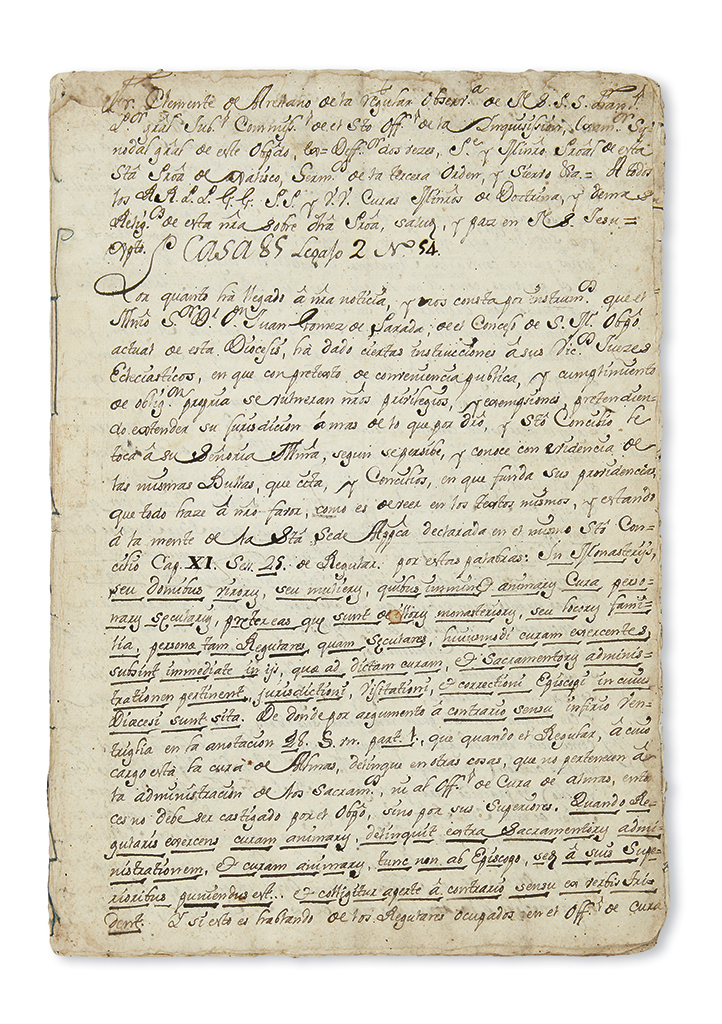 Fr. Clemente de Arellano de la regular Observ.ª de N. S. P. S. Fran.co
P.or gral Jub.do Commiss.º de el Sto Off.º de la Inquisision, Exam.or Sy=
nodal gral de este Obpdo, ex=Diff.or dos vezes, P.r y Minro Proãl de esta
Stã Proã de Xalisco, Serm.s de la tercera Orden, y Siervo &a.= A todos
los RR. PP. GG. PP. y VV. Curas Minros de Doctrina, y demas
Relig.os de esta nrã sobre dhã Proã, salud, y paz en N. S. Jesu=
Xpto. CASA 85 Legajo 2 Nº 54.
Por quanto ha llegado â nrã noticia, y nos consta por instrum.os que el
Illmô S.r D.r D.n Juan Gomez de Parada, de el Consejo de S. M. Obpô
actual de esta Diocesis, ha dado ciertas instrucciones â sus Vic.os Juezes
Eclesiasticos, en que con pretexto de conveniencia publica, y cumplimiento
de oblig.on propria se vulneran nrõs privilegios, y exempsiones, pretendien=
do extender su jurisdicion â mas de lo que por drô, y Stô Concilio le
toca â su Señoria Illmâ, segun se persibe, y conoce con evidencia de
las mismas Bullas, que cita, y Concilios, en que funda sus providencias,
que todo haze â nrô favor, como es de veer en los textos mismos, y estando
â la mente de la Stâ Sede Appcâ declarada en el mismo Stô Con=
cilio Cap. XI. Sess. 25. de Regular. por estas palabras: In Monasterijs,
seu domibus virorũ, seu mulierũ, quibus imminet animarũ Cura perso=
narũ seculariũ, preter eas que sunt de illorũ monasteriorũ, seu locorũ fami=
lia, personæ tam Regulares, quam Seculares, huiusmodi curam exercentes,
subsint immediate in ijs, quæ ad dictam curam, & Sacramentorũ adminis=
trationen pertinent, jurisdictioni, visitationi, & correctioni Episcopi in cuius
Diæcesi sunt sita. De donde por argumento â contrario sensu infirio Ven=
triglia en la anotacion 28. §. un. part. 1., que quando el Regular, â cuio
cargo està la cura de Almas, delinque en otras cosas, que no pertenecen â
la administracion de los Sacram.os, ni al Off.º de Cura de almas, enton=
ces no debe ser castigado por el Obpô, sino por sus Superiores. Quando Re=
gularis exercens curam animarũ, delinquit extra Sacramentorũ admi=
nistrationem, & curam animarũ, tunc non ab Episcopo, sed â suis Supe=
rioribus puniendus est... & colligitur aperte â contrario sensu ex verbis Tri=
dent. Y si esto es hablando de los Regulares ocupados en el Off.º de Cura